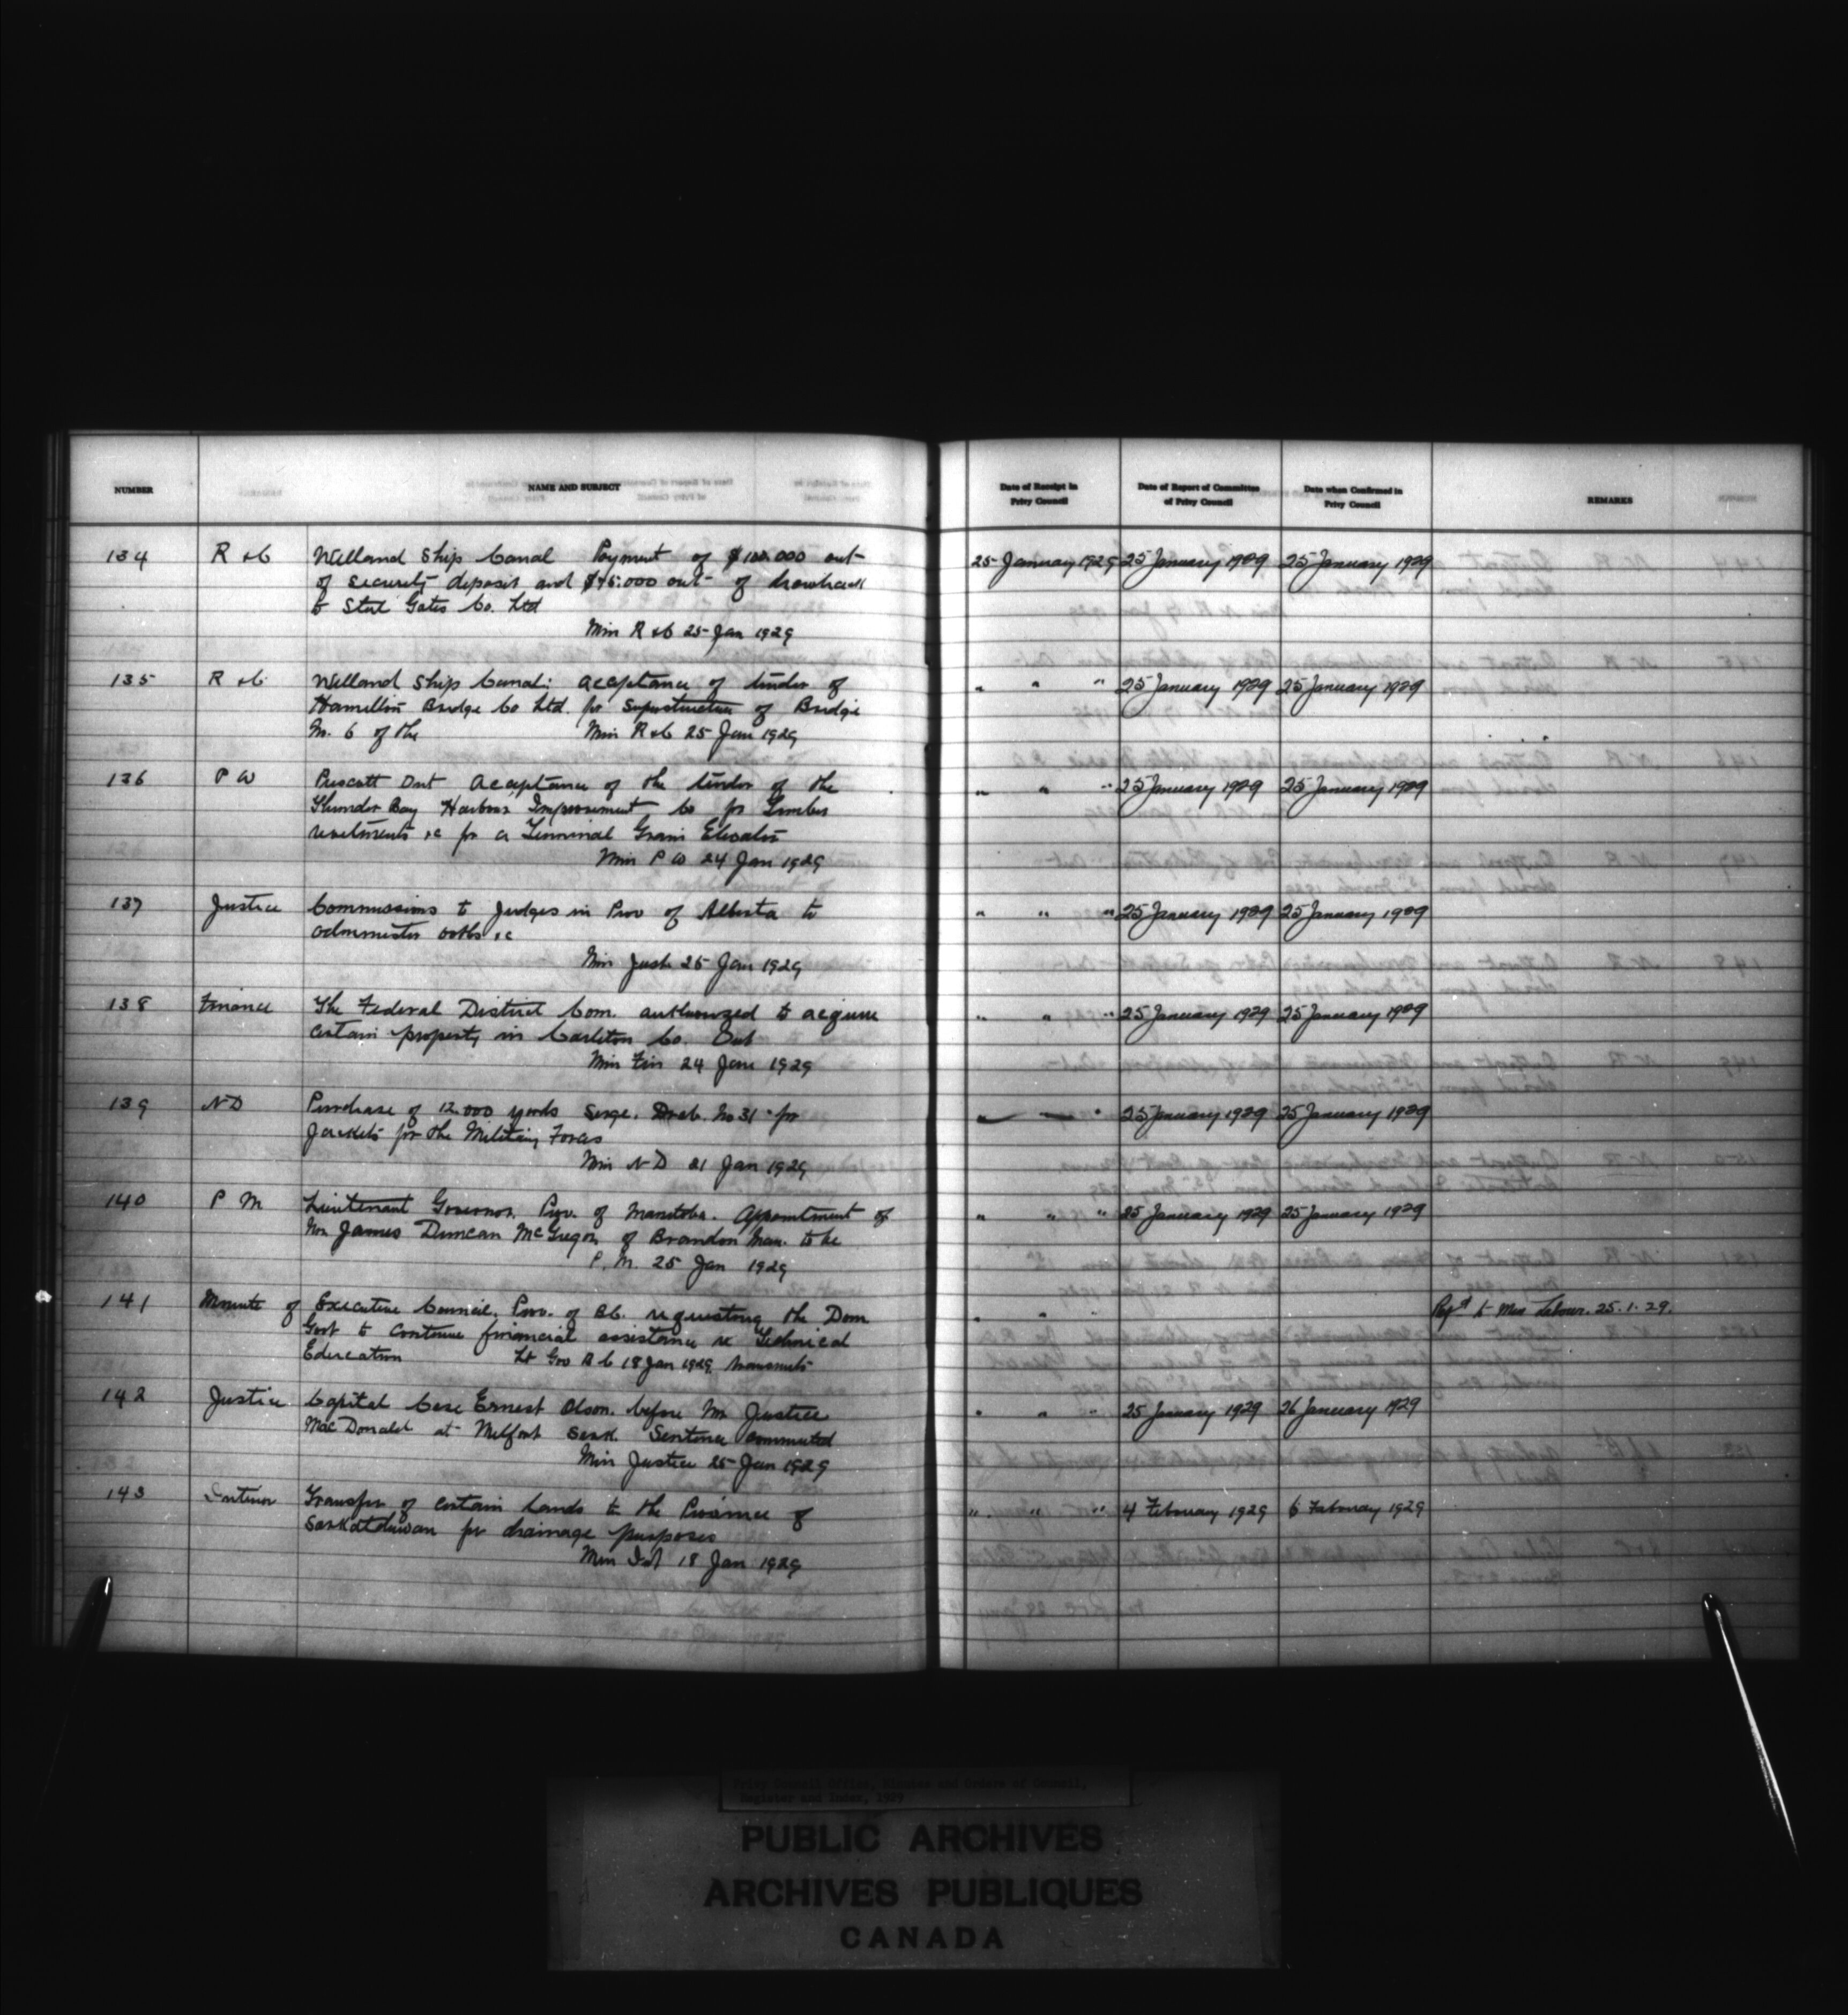 NUMBER
NAME AND SUBJECT
Date of Receipt in
Privy Council
Date of Report of Committee
of Privy Council
Date when Confirmed in
Privy Council
REMARKS
134 R & C Welland Ship Canal Payment of $100.000 out
of security deposit and $45.000 out of drawback
to Steel Gates Co. Ltd
Min R & C 25 Jan 1929
25 January 1929 25 January 1929 25 January 1929
135 R & C Welland Ship Canal: acceptance of tender of
Hamilton Bridge Co Ltd. for Superstructure of Bridge
No. 6 of the Min R & C 25 Jan 1929
" " " 25 January 1929 25 January 1929
136 P W Prescott Ont Acceptance of the tender of the
Thunder Bay Harbour Improvement Co for Timber
revetments &c for a Terminal Grain Elevator
Min P W 24 Jan 1929
" " " 25 January 1929 25 January 1929
137 Justice Commissions to Judges in Prov of Alberta to
administer oaths &c
Min Just 25 Jan 1929
" " " 25 January 1929 25 January 1929
138 Finance The Federal District Com. authorized to acquire
certain property in Carleton Co. Ont
Min Fin 24 Jan 1929
" " " 25 January 1929 25 January 1929
139 ND Purchase of 12.000 yards Serge. Drab. No 31 for
Jackets for the Military Forces
Min ND 21 Jan 1929
" " " 25 January 1929 25 January 1929
140 P M Lieutenant Governor. Prov. of Manitoba. Appointment of
Mr James Duncan McGregor of Brandon Man. to be
P. M. 25 Jan 1929
" " " 25 January 1929 25 January 1929
141 Minute of Executive Council. Prov. of BC. requesting the Dom
Govt to continue financial assistance re Technical
Education Lt Gov B C 18 Jan 1929 transmits
" " " Refd to Min Labour. 25.1.29.
142 Justice Capital Case Ernest Olson. before Mr Justice
MacDonald at Melfort Sask. Sentence commuted
Min Justice 25 Jan 1929
" " " 25 January 1929 26 January 1929
143 Interior Transfer of certain lands to the Province of
Saskatchewan for drainage purposes
Min Int 18 Jan 1929
" " " 4 February 1929 6 February 1929
Privy Council Office, Minutes and Orders of Council,
Register and Index, 1929
PUBLIC ARCHIVES
ARCHIVES PUBLIQUES
CANADA